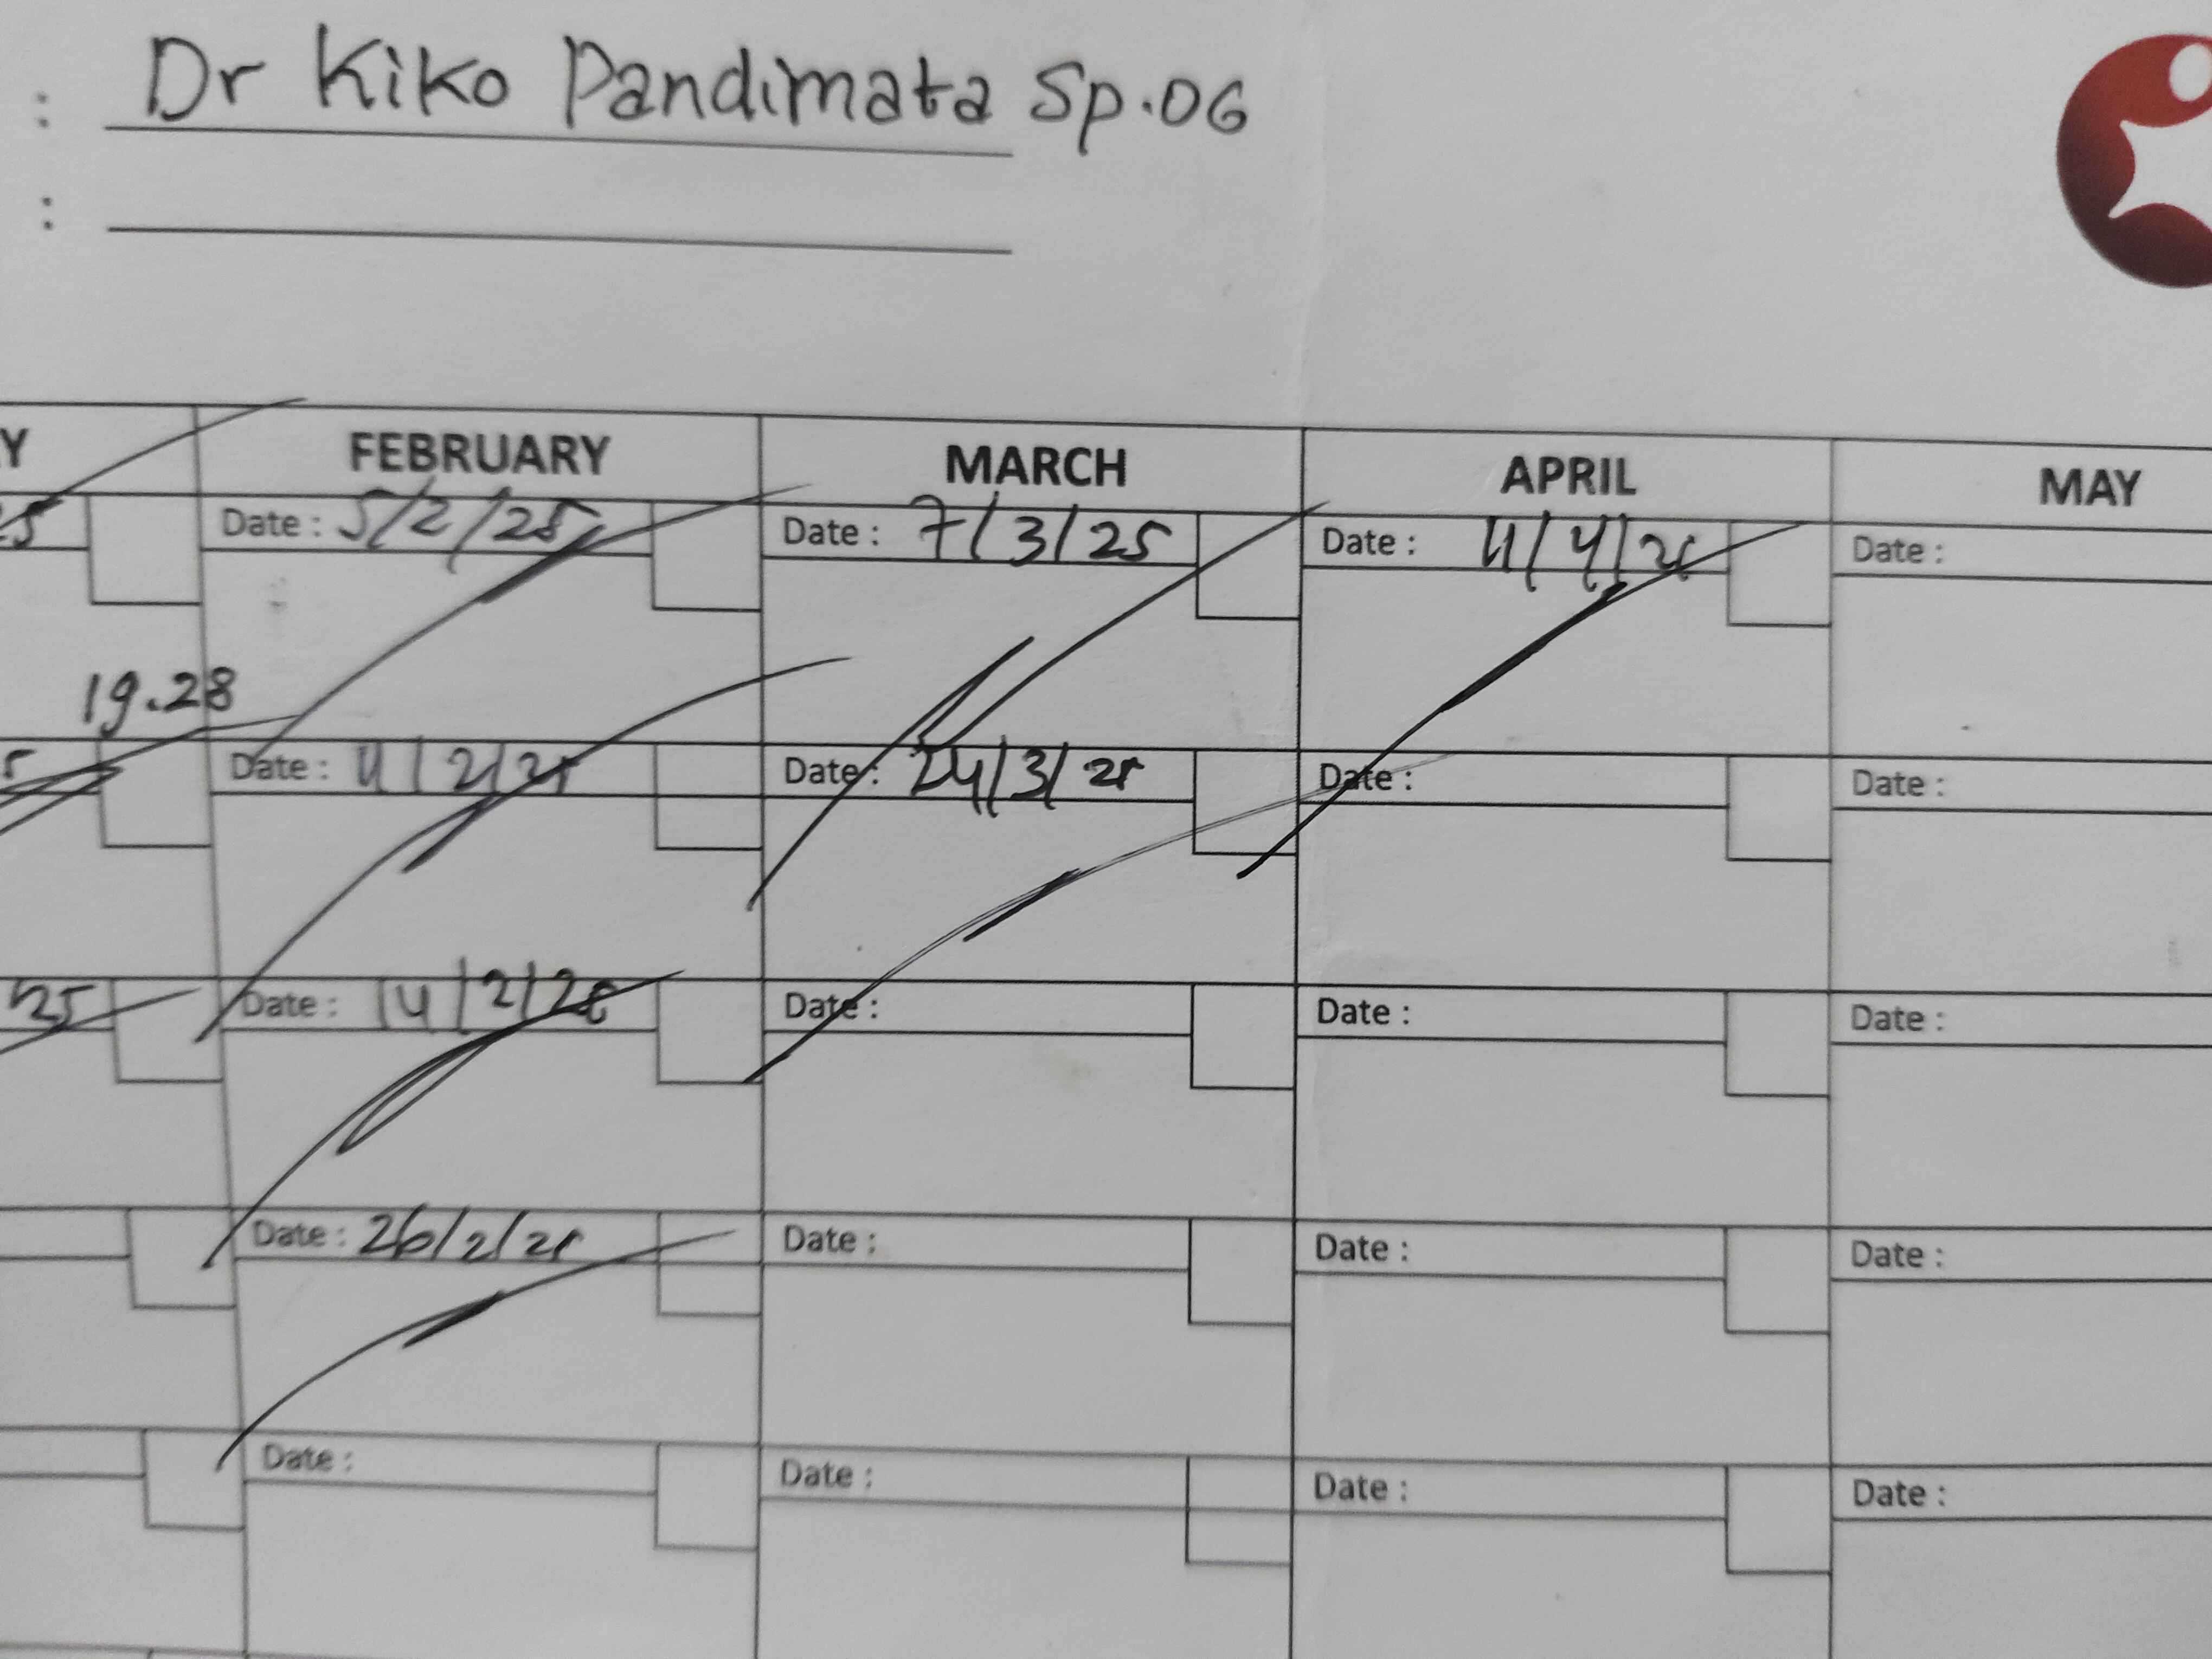 : Dr Kiko Pandimata Sp.OG
:
Y FEBRUARY MARCH APRIL MAY
25 Date : 5/2/25 Date : 7/3/25 Date : 11/4/25 Date :
19.28
5 Date : 11/2/25 Date : 24/3/25 Date : Date :
25 Date : 14/2/25 Date : Date : Date :
Date : 26/2/25 Date : Date : Date :
Date : Date : Date : Date :